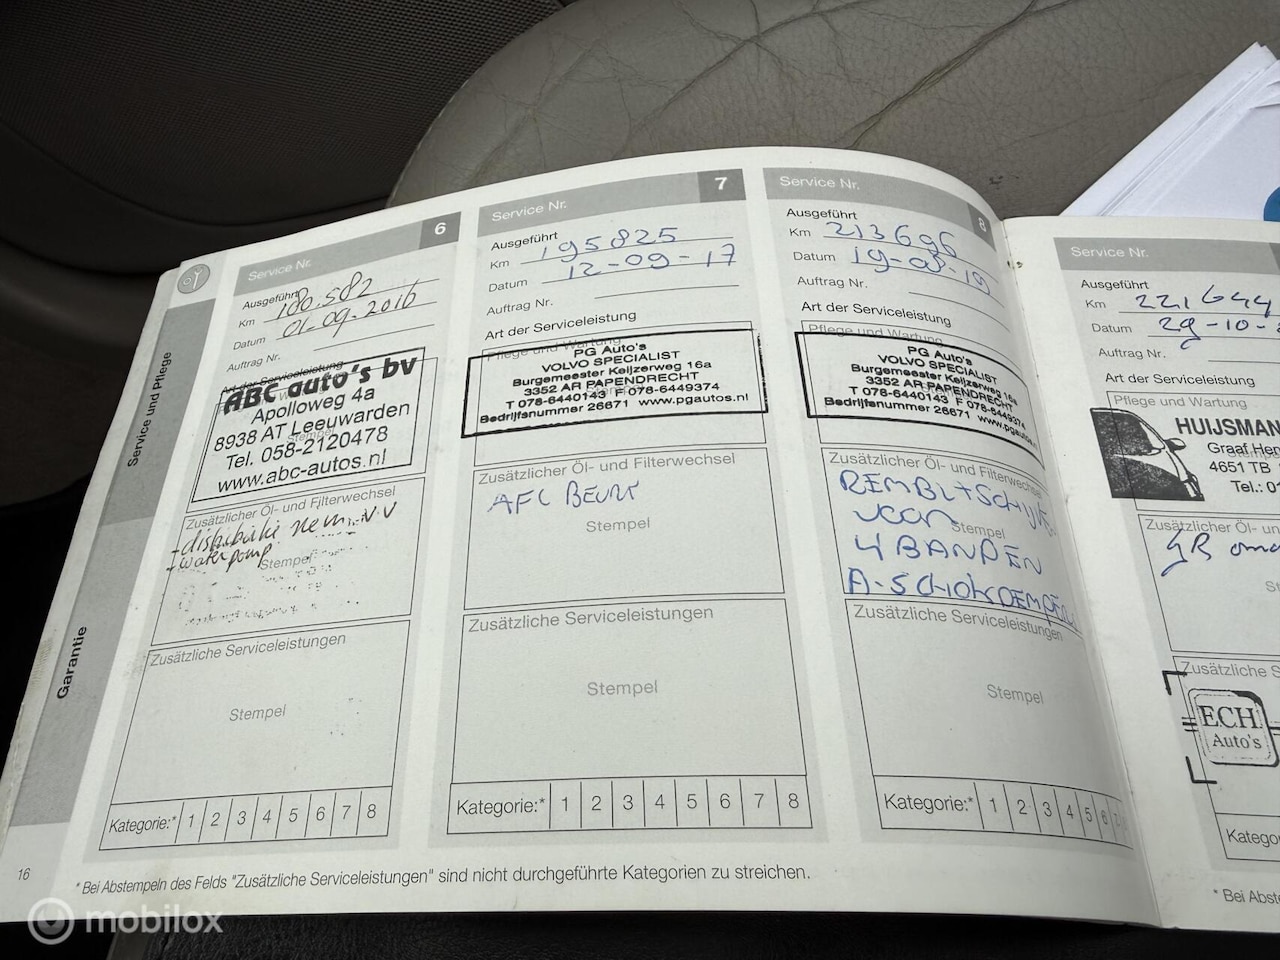 Service und Pflege
Garantie
16
Service Nr.
6
Ausgeführt
Km 180.582
Datum 01-09-2016
Auftrag Nr.
Art der Serviceleistung
ABC auto's bv
Apolloweg 4a
8938 AT Leeuwarden
Tel. 058-2120478
www.abc-autos.nl
Stempel
Zusätzlicher Öl- und Filterwechsel
- distributie riem
- waterpomp
Stempel
Zusätzliche Serviceleistungen
Stempel
Kategorie:* 1 2 3 4 5 6 7 8
Service Nr.
7
Ausgeführt
Km 195825
Datum 12-09-17
Auftrag Nr.
Art der Serviceleistung
Pflege und Wartung
PG Auto's
VOLVO SPECIALIST
Burgemeester Keijzerweg 16a
3352 AR PAPENDRECHT
T 078-6440143 F 078-6449374
Bedrijfsnummer 26671 www.pgautos.nl
Zusätzlicher Öl- und Filterwechsel
AFL BEURT
Stempel
Zusätzliche Serviceleistungen
Stempel
Kategorie:* 1 2 3 4 5 6 7 8
Service Nr.
8
Ausgeführt
Km 213696
Datum 19-08-19
Auftrag Nr.
Art der Serviceleistung
Pflege und Wartung
PG Auto's
VOLVO SPECIALIST
Burgemeester Keijzerweg 16a
3352 AR PAPENDRECHT
T 078-6440143 F 078-6449374
Bedrijfsnummer 26671 www.pgautos.
Zusätzlicher Öl- und Filterwechsel
REMBL+SCHIJVEN
VOOR
Stempel
4 BANDEN
A-SCHOKDEMPER
Zusätzliche Serviceleistungen
Stempel
Kategorie:* 1 2 3 4 5 6
* Bei Abstempeln des Felds "Zusätzliche Serviceleistungen" sind nicht durchgeführte Kategorien zu streichen.
Service Nr.
Ausgeführt
Km 221644
Datum 29-10-
Auftrag Nr.
Art der Serviceleistung
Pflege und Wartung
HUIJSMAN
Graaf Hen
4651 TB
Tel.: 01
Zusätzlicher Öl- un
GB
St
Zusätzliche S
ECH
Auto's
Katego
* Bei Abste
mobilox